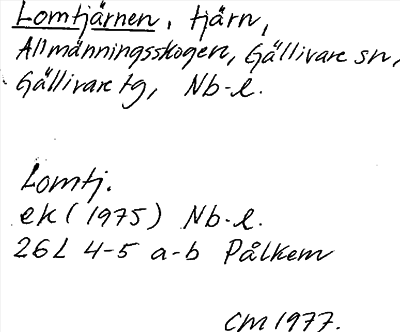 Lomtjärnen, tjärn,
Allmänningsskogen, Gällivare sn,
Gällivare tg, Nb-l.
Lomtj.
ek (1975) Nb-l.
26L 4-5 a-b Pålkem
CM 1977.